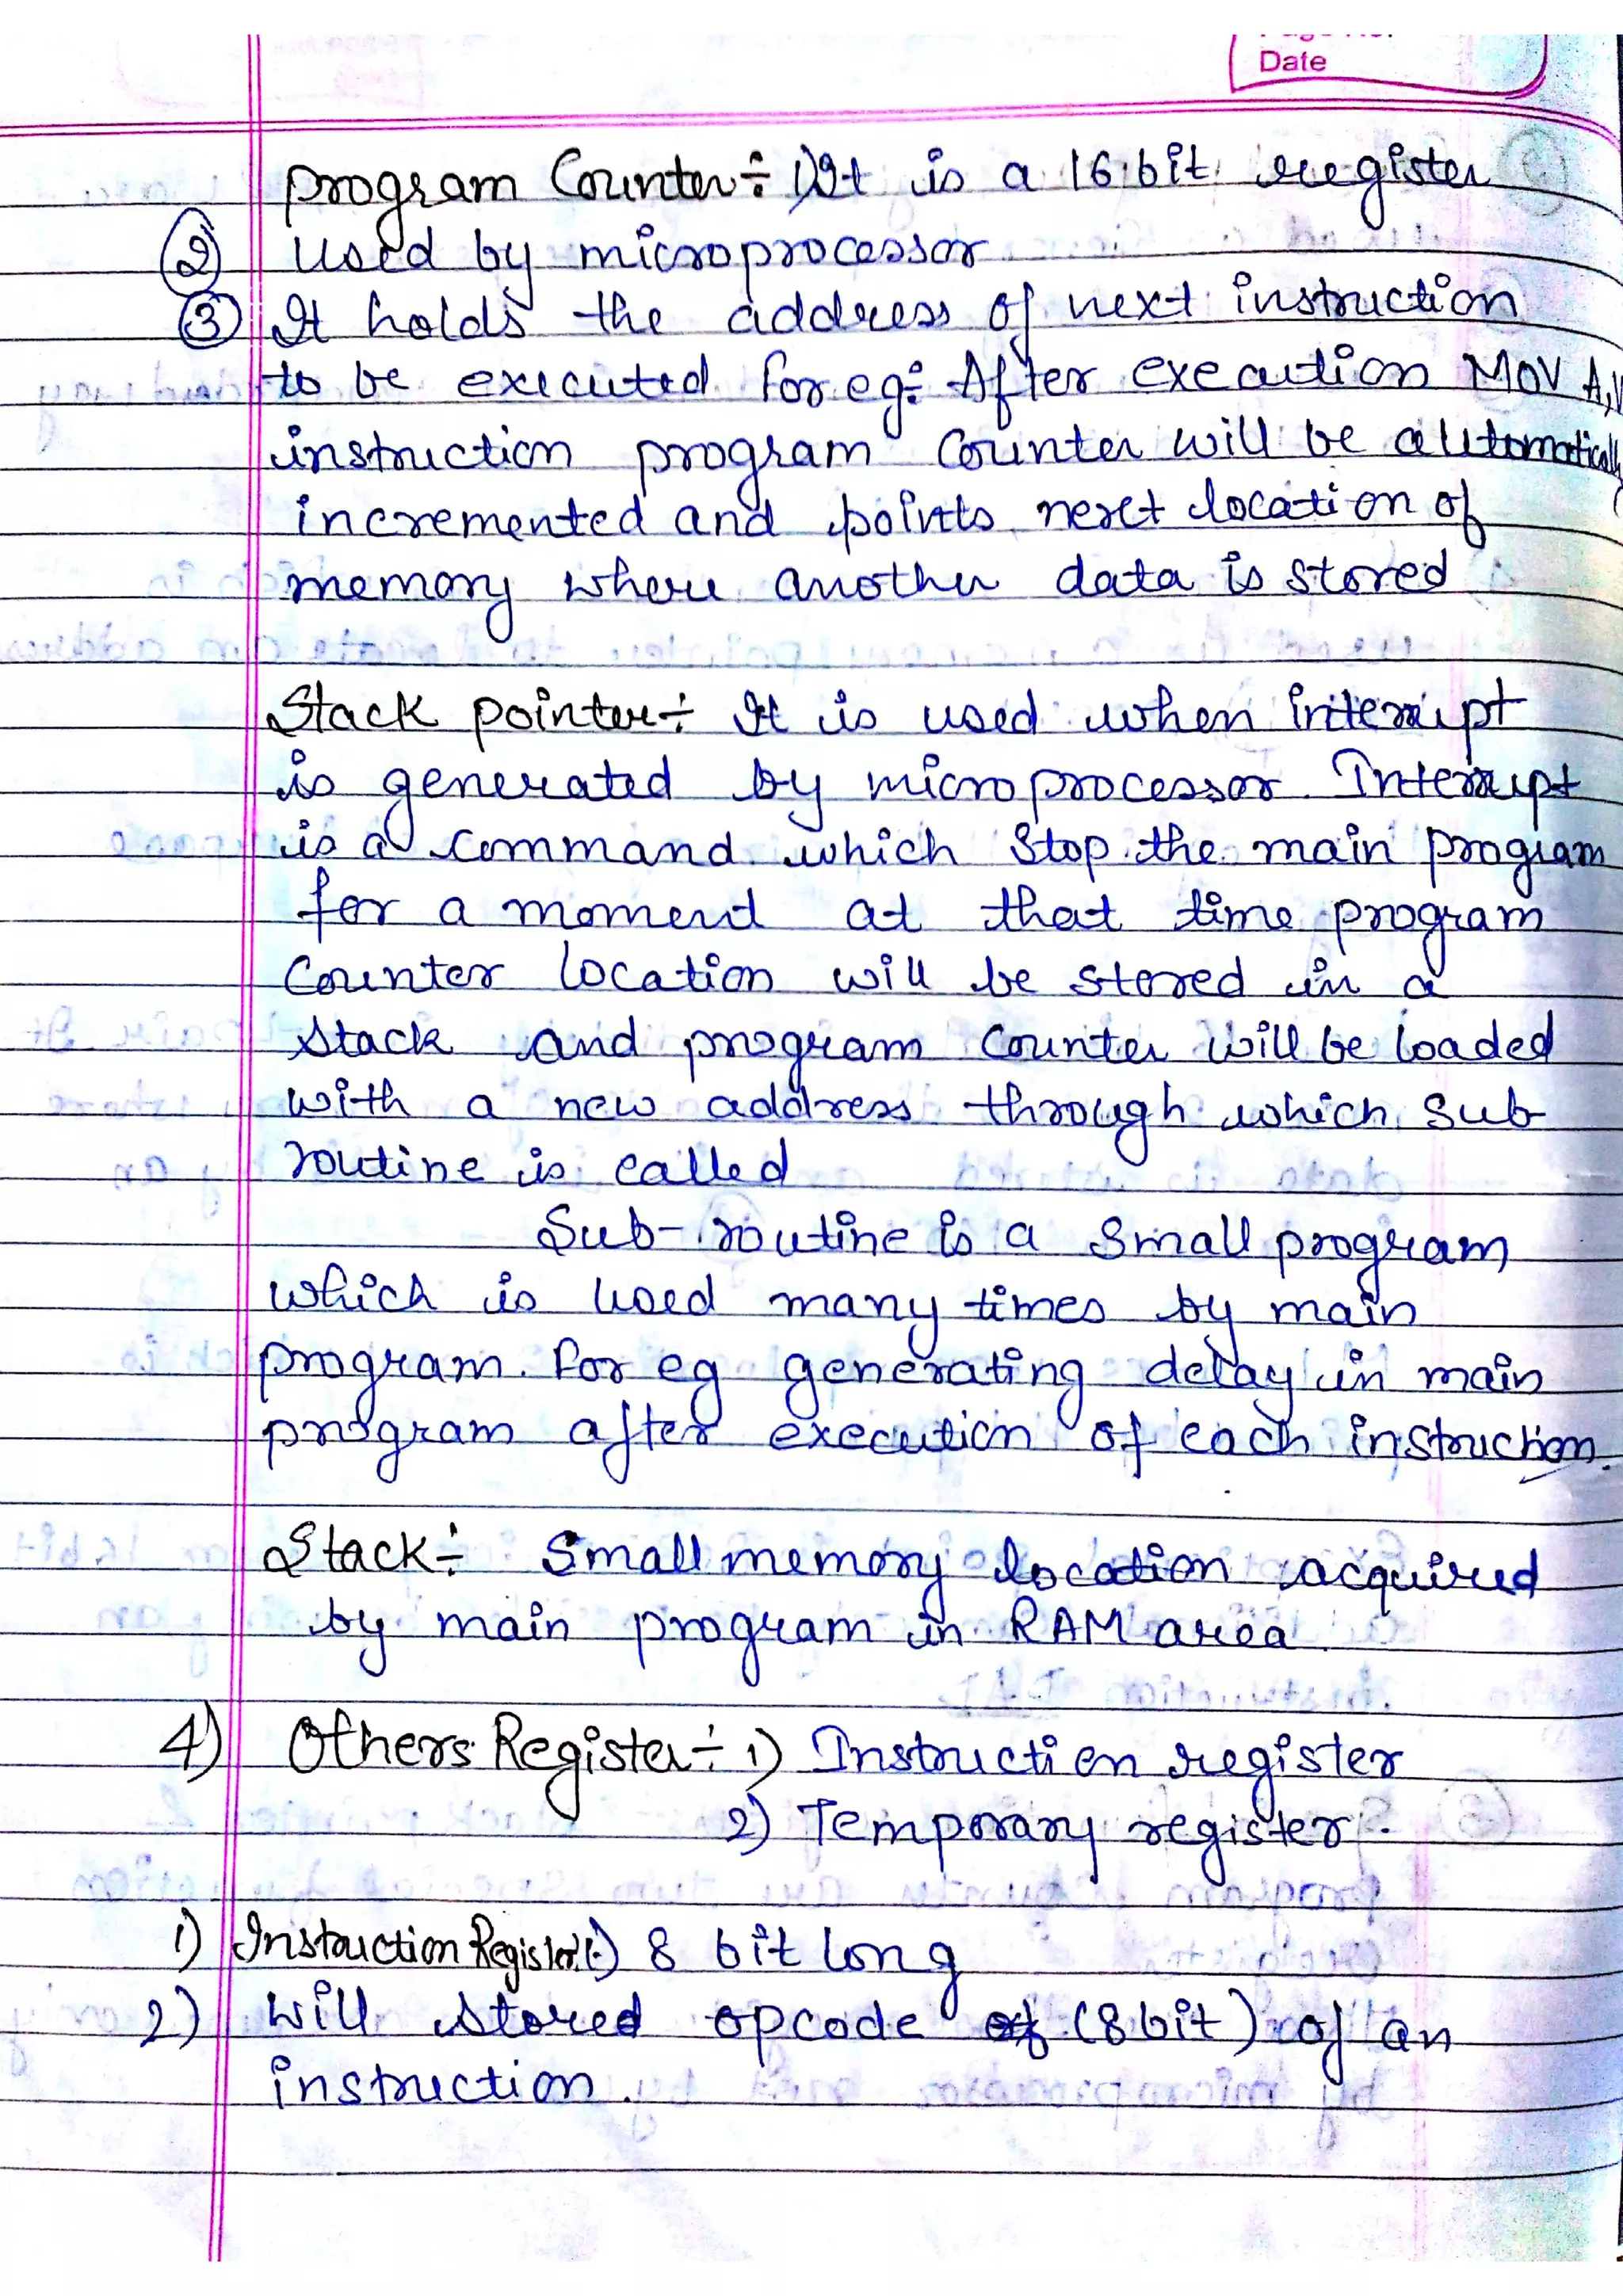 Date
program Counter÷ 1) It is a 16 bit register
② used by microprocessor
③ It holds the address of next instruction
to be executed for eg÷ After execution MOV A,
instruction program Counter will be automatically
incremented and points next location of
memory where another data is stored
Stack pointer÷ It is used when interrupt
is generated by microprocessor. Interrupt
is a command which stop the main program
for a moment at that time program
Counter location will be stored in a
stack and program Counter will be loaded
with a new address through which sub
routine is called
Sub-routine is a small program
which is used many times by main
program. for eg generating delay in main
program after execution of each instruction.
Stack÷ Small memory location acquired
by main program in RAM area.
4) Others Register÷ 1) Instruction register
2) Temporary register.
1) Instruction Register 8 bit long
2) will stored opcode of (8 bit) of an
instruction.